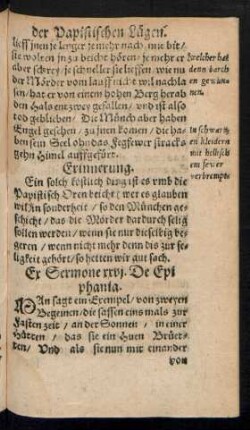 der Papistischen Lügen.
lieff jnen je lenger je mehr nach / mit bit /
sie wolten jn zu beicht hören / je mehr er
aber schrey / je schneller sie lieffen / wie nu
der Mörder vom lauff nicht wil nachla
sen / hat er von einem hohen Berg herab
den Hals entzwey gefallen / vnd ist also
tod geblieben / Die Münch aber haben
Engel gesehen / zu jnen komen / die ha
ben sein Seel ohn das Fegfewer stracks
gehn Himel auffgefürt.
Erinnerung.
Ein solch köstlich ding ist es vmb die
Papistisch Oren beicht / wer es glauben
wil / In sonderheit / so den München ge
schicht / das die Mörder dardurch selig
sollen werden / wenn sie nur die selbig be
geren / wenn nicht mehr denn dis zur se
ligkeit gehört / so hetten wir gut sach.
Ex Sermone xxvj. De Epi
phania.
MAn sagt ein Exempel / von zweyen
Begeinen / die sassen eins mals zur
Fasten zeit / an der Sonnen / in einer
Hütten / das sie ein Huen Brüet-
ten / Vnd als sie nun mit einander
von
welcher hat
denn durch
en gewun-
nen.
In schwartz
en kleidern
mit hellisch
em fewer
verbrempt